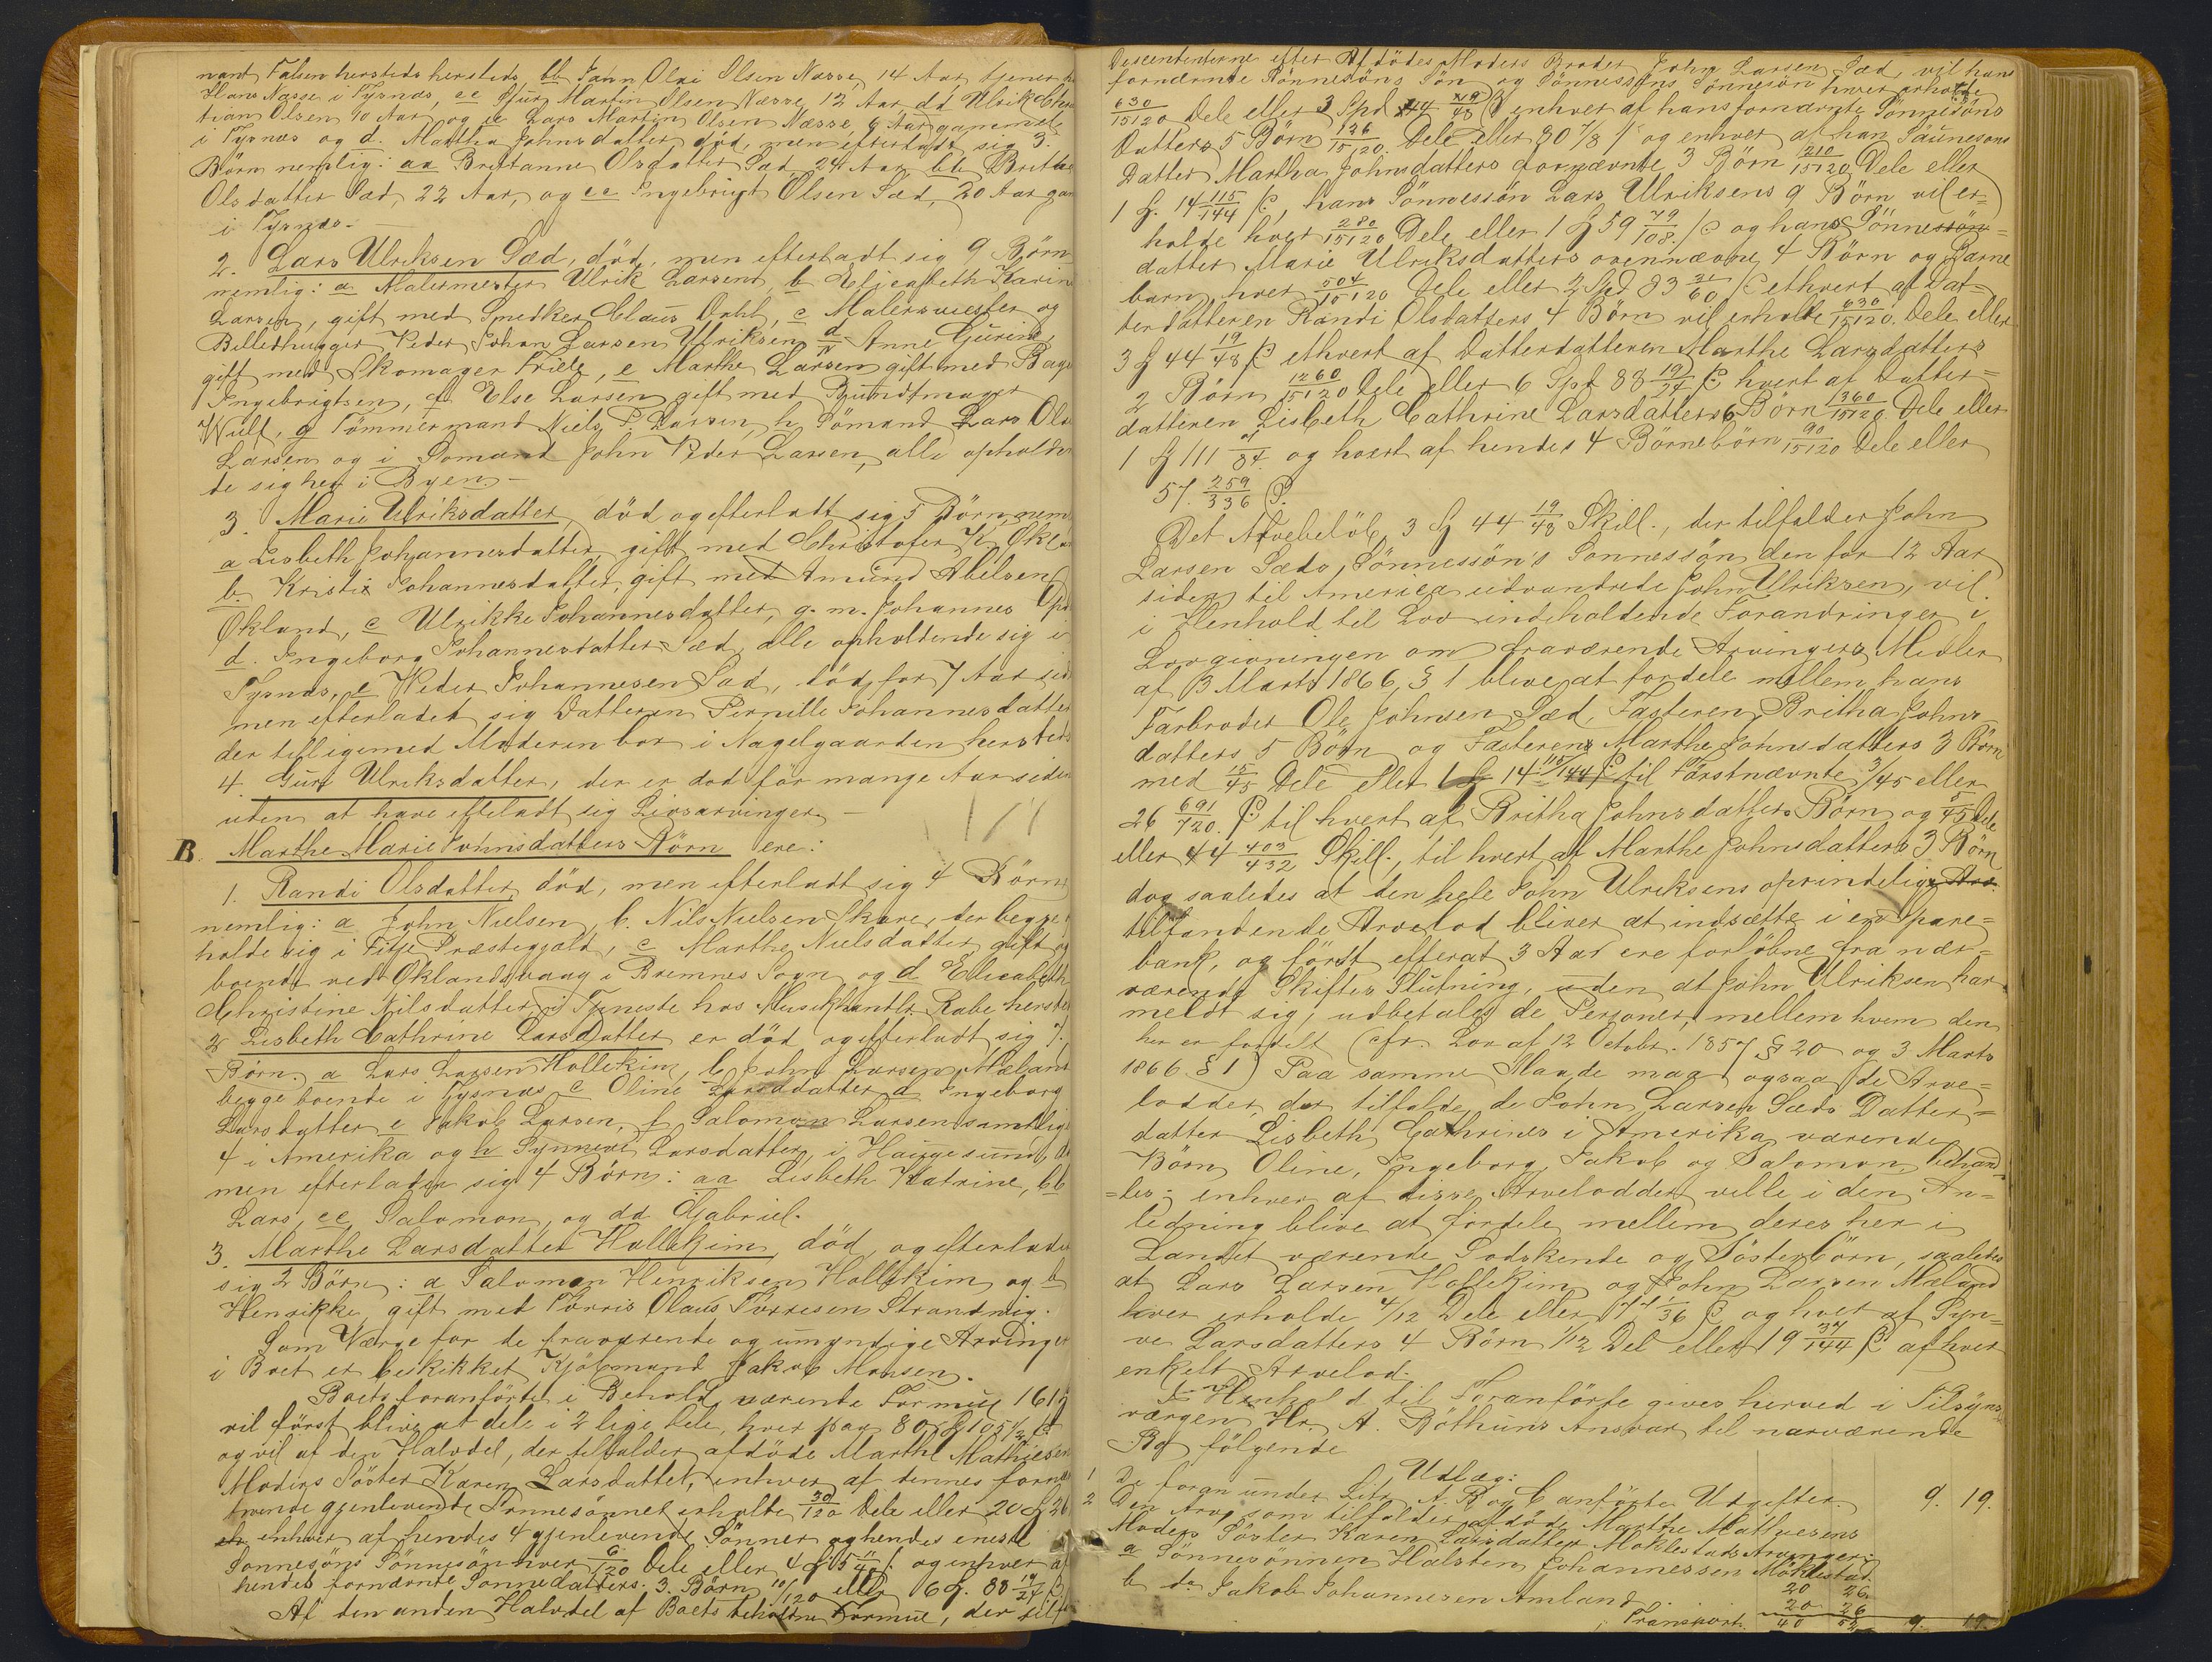 nant Falsen hersteds hersteds, bb Jahn Olai Olsen Næsse, 14 Aar, tjener
Hans Næsse i Tysnæs, cc Sjur Martin Olsen Næsse 12 Aar dd Ulrik Chr
tian Olsen 10 Aar og ee Lars Martin Olsen Næsse, 6 Aar gammel
i Tysnæs og d. Martha Johnsdatter død, men efterladt sig 3.
Børn nemlig: aa Britanne Olsdatter Sæd, 24 Aar bb Britha
Olsdatter Sæd, 22 Aar, og cc Ingebrigt Olsen Sæd, 20 Aar gam
i Tysnæs.
2. Lars Ulriksen Sæd, død, men efterladt sig 9 Børn
nemlig: a Malermester Ulrik Larsen, b Elisabeth Karin
Larsen, gift med Snedker Claus Dahl, c Malersvester og
Billedhugger Peder Johan Larsen Ulriksen d Anne Gurine,
gift med Skomager Friele, e Marthe Larsen gift med Bag
Ingebrigtsen, f Else Larsen gift med Bundtmager
Wulf, g Tømmermand Niels P. Larsen, h Sømand Lars Ola
Larsen og i Sømand John Peder Larsen, alle opholden
de sig her i Byen
3. Marie Ulriksdatter, død og efterladt sig 5 Børn, nem
a Lisbeth Johannesdatter, gift med Christofer K. Økla
b. Kristi Johannesdatter, gift med Amund Abelsen
Økland, c Ulrikke Johannesdatter, g. m. Johannes Op
d. Ingeborg Johannesdatter Sæd, alle opholdende sig i
Tysnæs, e Peder Johannesen Sæd, død for 7 Aar sid
men efterladet sig Datteren Pernille Johannesdatter
der tilligemed Moderen bor i Nagelgaarden hersteds
4. Guri Ulriksdatter, der er død før mange Aar siden
uden at have efterladt sig Livsarvinger
B. Marthe Marie Johnsdatters Børn ere:
1. Randi Olsdatter, død, men efterladt sig 4 Børn
nemlig: a John Nielsen, b. Nils Nielsen Skare, der begge
holde sig i Fitje Præstegjæld, c Marthe Nielsdatter, gift og
boende ved Øklandsvaag i Bremnes Sogn og d Elisabeth
Christine Nilsdatter, i Tjeneste hos Musikhandler Rabe herste
2 Lisbeth Cathrine Larsdatter er død og efterladt sig 7.
Børn. a Lars Larsen Hollekim, b John Larsen Mæland
begge boende i Tysnæs c Oline Larsdatter d Ingeborg
Larsdatter e Jakob Larsen, f Salomon Larsen samtlige
4 i Amerika og h Synneve Larsdatter, i Haugesund, d
men efterladen sig 4 Børn: aa Lisbeth Katrine, bb
Lars, cc Salomon, og dd Gabriel.
3. Marthe Larsdatter Hollekim død, og efterladet
sig 2 Børn: a Salomon Henriksen Hollekim og b
Henrikke, gift med Torris Olaus Torresen Strandvig.
Som Værge for de fraværende og umyndige Arvinger
i Boet er beskikket Kjøbmand Jakob Monsen.
Boets foranførte i Behold værende Formue 161
vil først blive at dele i 2 lige dele, hver paa 80 105 1/2
og vil af den Halvdel, der tilfalder afdøde Marthe Mathiesens
Moders Søster Karen Larsdatter, enhver af dennes fornæ
tvende gjenlevende Sønnesønner erholde 30/120 Dele eller 20 26
enhver af hendes 4 gjenlevende Sønner og hendes eneste
Sønnesøns Sønnesøn hver 6/120 Dele eller 4 5 og enhver af
hendes fornævnte Sønnedatters 3. Børn 10/120 eller 6 88 19/24
Af den anden Halvdel af Boets beholdne Formue, der tilfa
Descendenterne efter Afdødes Moders Broder John Larsen Sæd, vil hans
fornævnte Sønnesøns Søn og Sønnesøns Sønnesøn hver erholde
630/15120 Dele eller 3 Spd 44 19/48 enhver af hans fornævnte Sønnesøns
Datters 5 Børn 126/15120 Dele eller 80 7/8 og enhver af han Sønnesøns
Datter Martha Johnsdatters fornævnte 3 Børn 210/15120 Dele eller
1 14 115/144, hans Sønnesøn Lars Ulriksens 9 Børn vil er=
holde hver 280/15120 Dele eller 1 59 79/108 og hans Sønnesøn=
datter Marie Ulriksdatters ovennævne 4 Børn og Barne
barn, hver 504/15120 Dele eller 2 Spd 83 31/60 ethvert af Dat=
terdatteren Randi Olsdatters 4 Børn vil erholde 630/15120 Dele eller
3 44 19/48 ethvert af Datterdatteren Marthe Larsdatters
2 Børn 1260/15120 Dele eller 6 Spd 88 19/24 hvert af Datter=
datteren Lisbeth Cathrine Larsdatters 6 Børn 1360/15120 Dele eller
1 111 /84 og hvert af hendes 4 Børnebørn 90/15120 Dele eller
57. 259/336
Det Arvebeløb, 3 44 19/48 Skill., der tilfalder John
Larsen Sæds, Sønnesøn's Sønnesøn den for 12 Aar
siden til America udvandrede John Ulriksen, vil
i Henhold til Lov indeholdende Forandringer i
Lovgivningen om fraværende Arvingers Midler
af 3 Marts 1866, § 1 blive at fordele mellem hans
Farbroder Ole Johnsen Sæd, Fasteren Britha Johns
datters 5 Børn og Fasteren Marthe Johnsdatters 3 Børn
med 15/45 Dele eller 1 14 115/144 til Førstnævnte 3/45 eller
26 691/720 til hvert af Britha Johnsdatters Børn og 5/45 Dele
eller 44 403/432 Skill., til hvert af Marthe Johnsdatters 3 Børn
dog saaledes at den hele John Ulriksens oprindelige Arv
tilfaldende Arvelod bliver at indsætte i en Spare=
bank, og først efterat 3 Aar ere forløbne fra nær=
værende Skiftes Slutning, uden at John Ulriksen har
meldt sig, udbetales de Personer, mellem hvem den
her er fordelt (cfr. Lov af 12 Octobr. 1857 § 20 og 3 Marts
1866 § 1) Paa samme Maade maa ogsaa de Arve=
lodder, der tilfalde de John Larsen Sæds Datter=
datter Lisbeth Cathrines i Amerika værende
Børn, Oline, Ingeborg, Jakob og Salomon, behand
=les; enhver af disse Arvelodder ville i den An=
ledning blive at fordele mellem deres her i
Landet værende Sødskende og Søsterbørn, saaledes
at Lars Larsen Hollekim og John Larsen Mæland
hver erholde 4/12 Dele eller 77 1/36 og hver af Syn=
ve Larsdatters 4 Børn 1/12 Del eller 19 37/144 af hver
enkelt Arvelod.
I Henhold til Foranførte gives herved i Tilsyns
værgen Hr. A. Bøthuns Ansvar til nærværende
Bo følgende
Udlæg:
1 De foran under Litr A. B og C anførte Udgifter. 9. 19.
2 Den Arv, som tilfalder afdøde Marthe Mathiesens
Moders Søster Karen Larsdatter Møklestads Arvinger:
a Sønnesønnen Halsten Johannessen Møklestad 20 26.
b do Jakob Johannesen Amland 20 26
Transport. 40 52 9. 19.